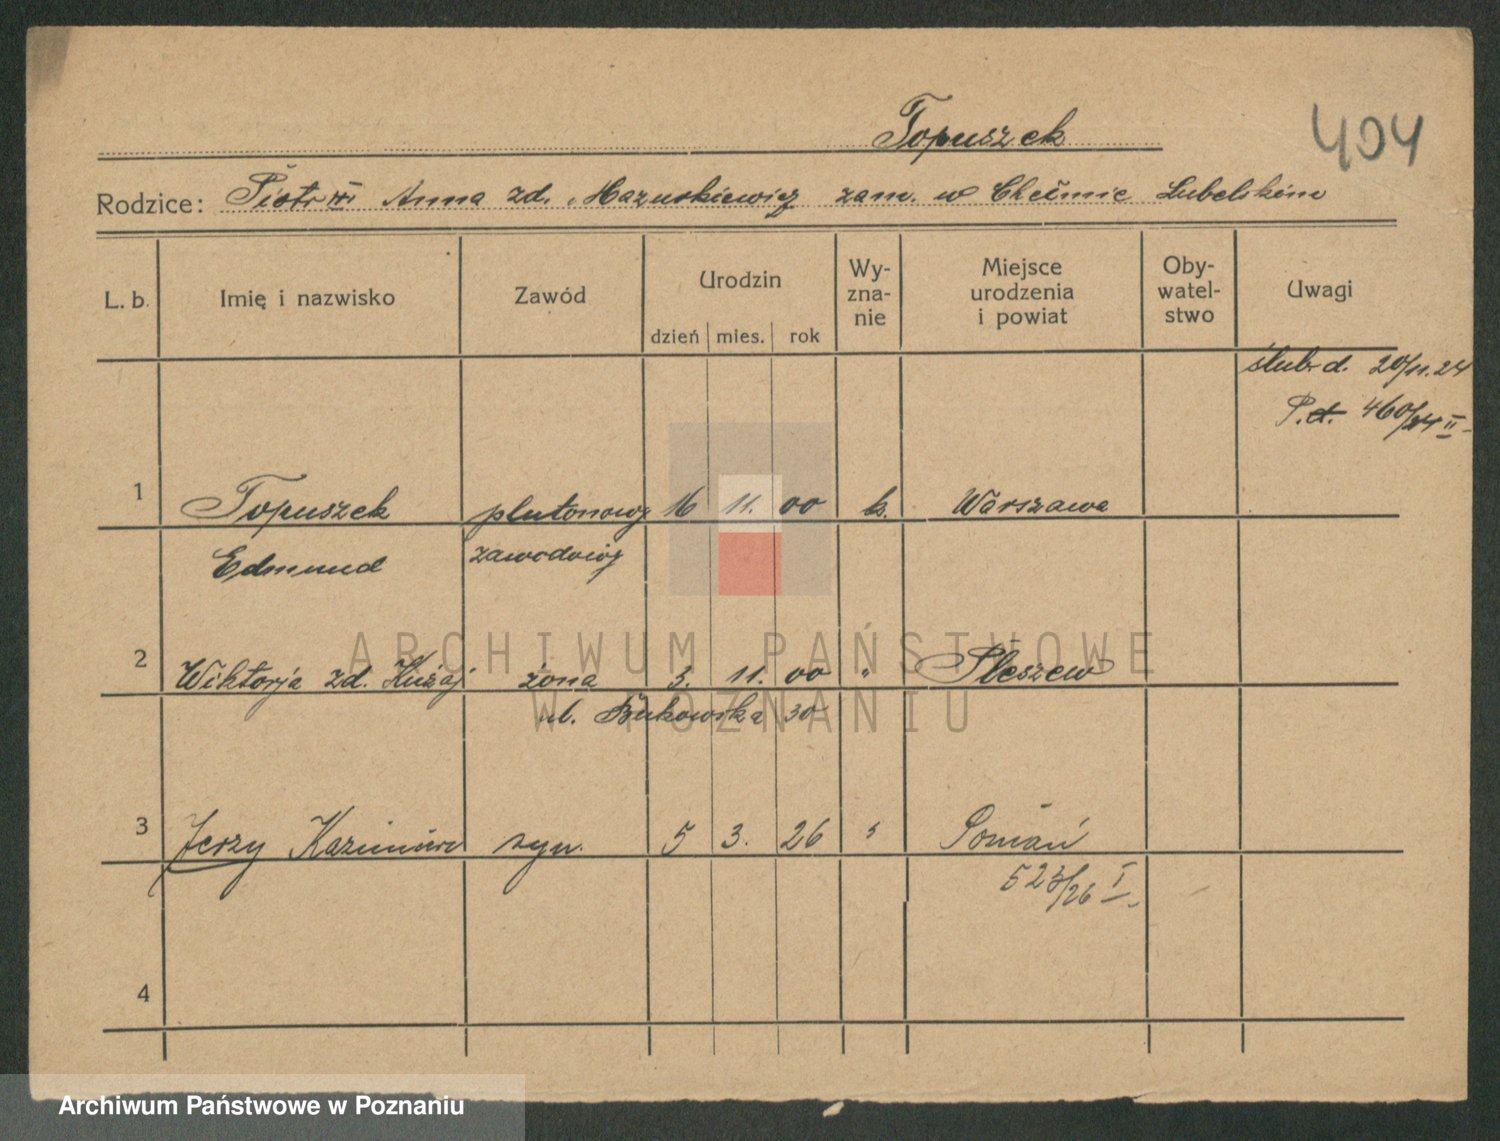 Topuszek
404
Rodzice: Piotr Anna zd. Mazurkiewicz zam. w Chełmie Lubelskim
L. b. Imię i nazwisko Zawód Urodzin Wy-zna-nie Miejsce urodzenia i powiat Oby-watel-stwo Uwagi
dzień mies. rok
ślub. d. 20/11.24
P. d. 460/24 II
1 Topuszek plutonowy 16 11. 00 k. Warszawa
Edmund zawodowy
2 Wiktorja zd. Kużaj żona 3. 11. 00 " Pleszew
ul. Bukowska 30
3 Jerzy Kazimierz syn. 5 3. 26 " Poznań
523/26 I
4
ARCHIWUM PAŃSTWOWE
W POZNANIU
Archiwum Państwowe w Poznaniu